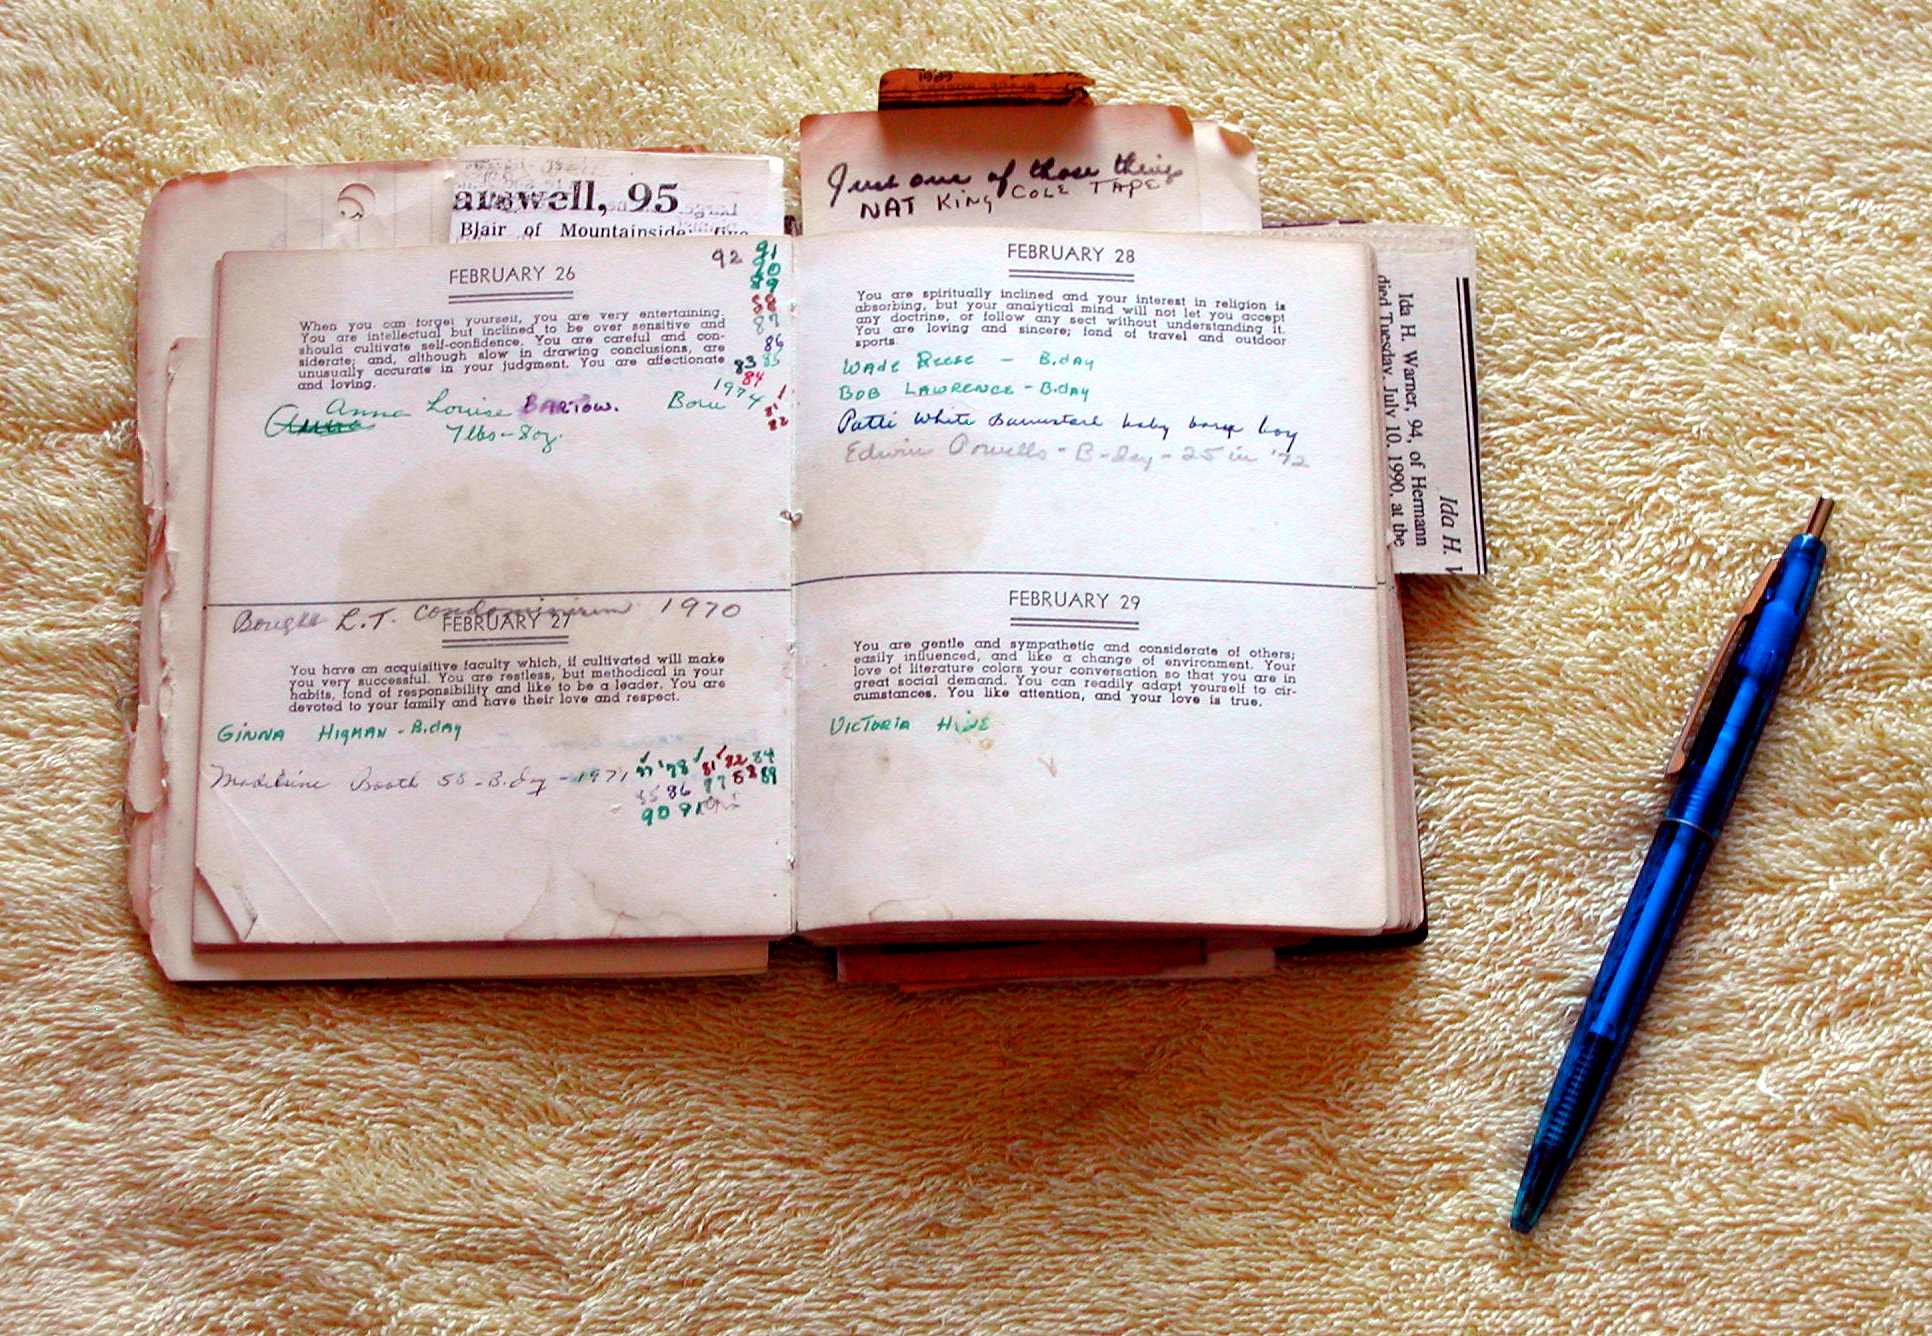 1989
Just one of those things
NAT KING COLE TAPE
arswell, 95
Blair of Mountainside; five
FEBRUARY 26
92 91
90
89
88
87
86
83 85
84
When you can forget yourself, you are very entertaining.
You are intellectual but inclined to be over sensitive and
should cultivate self-confidence. You are careful and con-
siderate; and, although slow in drawing conclusions, are
unusually accurate in your judgment. You are affectionate
and loving.
Anna Louise BARTOW. Born 1974
7 lbs - 8 oz.
81
82
Bought L.T. condominium 1970
FEBRUARY 27
You have an acquisitive faculty which, if cultivated will make
you very successful. You are restless, but methodical in your
habits, fond of responsibility and like to be a leader. You are
devoted to your family and have their love and respect.
GINNA HIGMAN - B.day
Madeline Booth 58 - B.day - 1971 77 '78 '81 '82 84
85 86 87 88 89
90 91
FEBRUARY 28
You are spiritually inclined and your interest in religion is
absorbing, but your analytical mind will not let you accept
any doctrine, or follow any sect without understanding it.
You are loving and sincere; fond of travel and outdoor
sports.
WADE REESE - B.dAY
BOB LAWRENCE - B.dAY
Patti White baby boy
Edwin Powells - B-day - 25 in '72
FEBRUARY 29
You are gentle and sympathetic and considerate of others;
easily influenced, and like a change of environment. Your
love of literature colors your conversation so that you are in
great social demand. You can readily adapt yourself to cir-
cumstances. You like attention, and your love is true.
VICTORIA
Ida H.
Ida H. Warner, 94, of Hermann
died Tuesday, July 10, 1990, at the